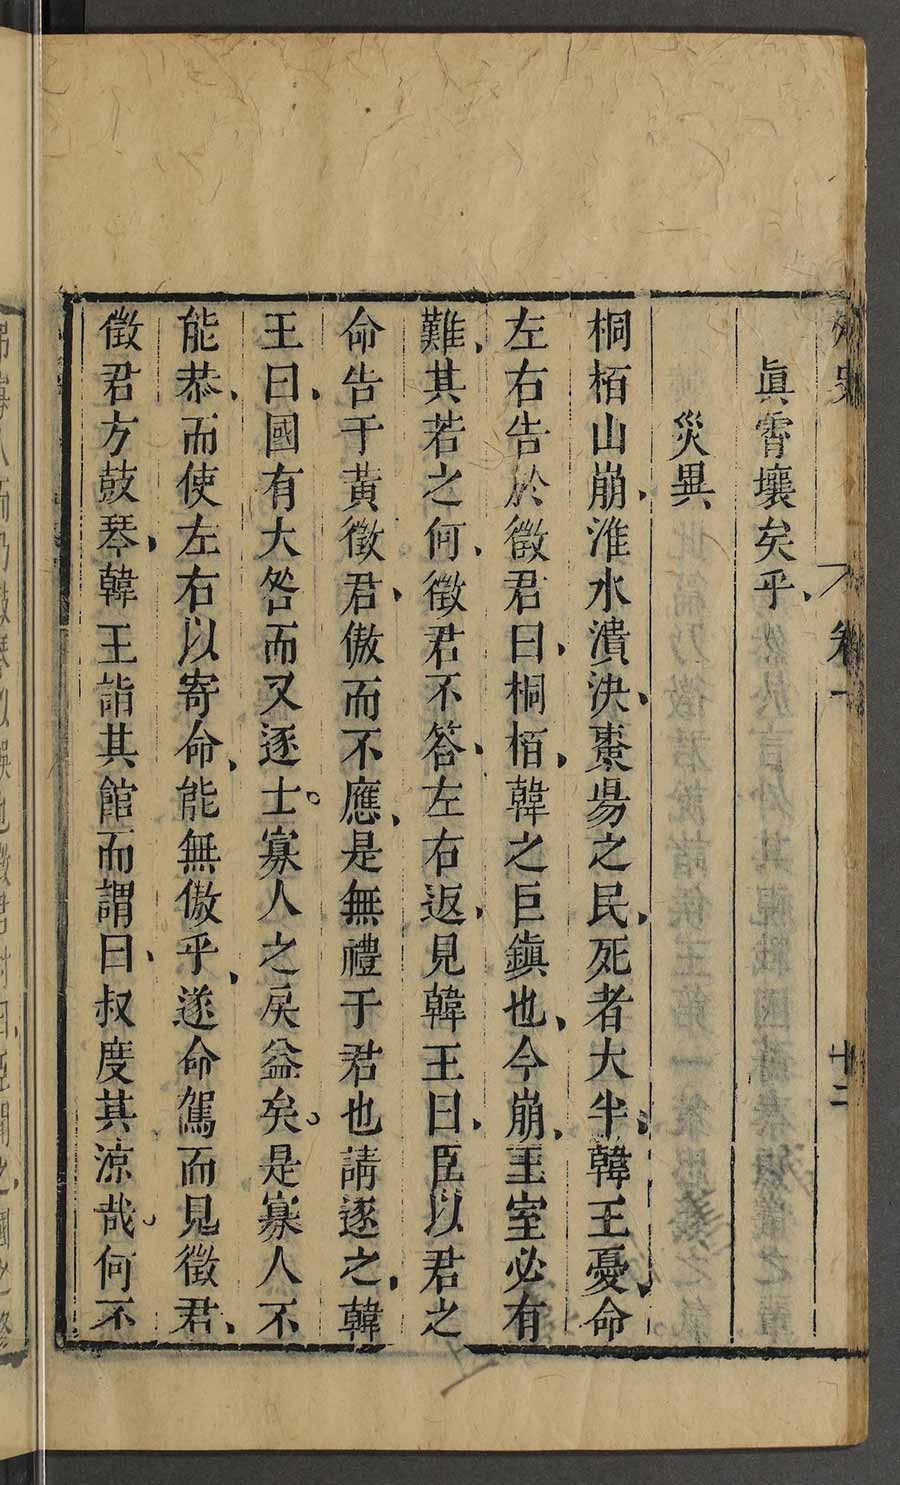 眞霄壤矣乎、
災異
桐栢山崩、淮水潰決、棗昜之民、死者大半、韓王憂、命
左右告於徵君曰、桐栢、韓之巨鎮也、今崩、王室必有
難、其若之何、徵君不答、左右返、見韓王曰、臣以君之
命告于黃徵君、傲而不應、是無禮于君也請逐之、韓
王曰、國有大咎而又逐士。寡人之戾益矣。是寡人不
能恭、而使左右以寄命、能無傲乎、遂命駕而見徵君、
徵君方鼓琴、韓王詣其館而謂曰、叔度其涼哉。何不
卷一
十二